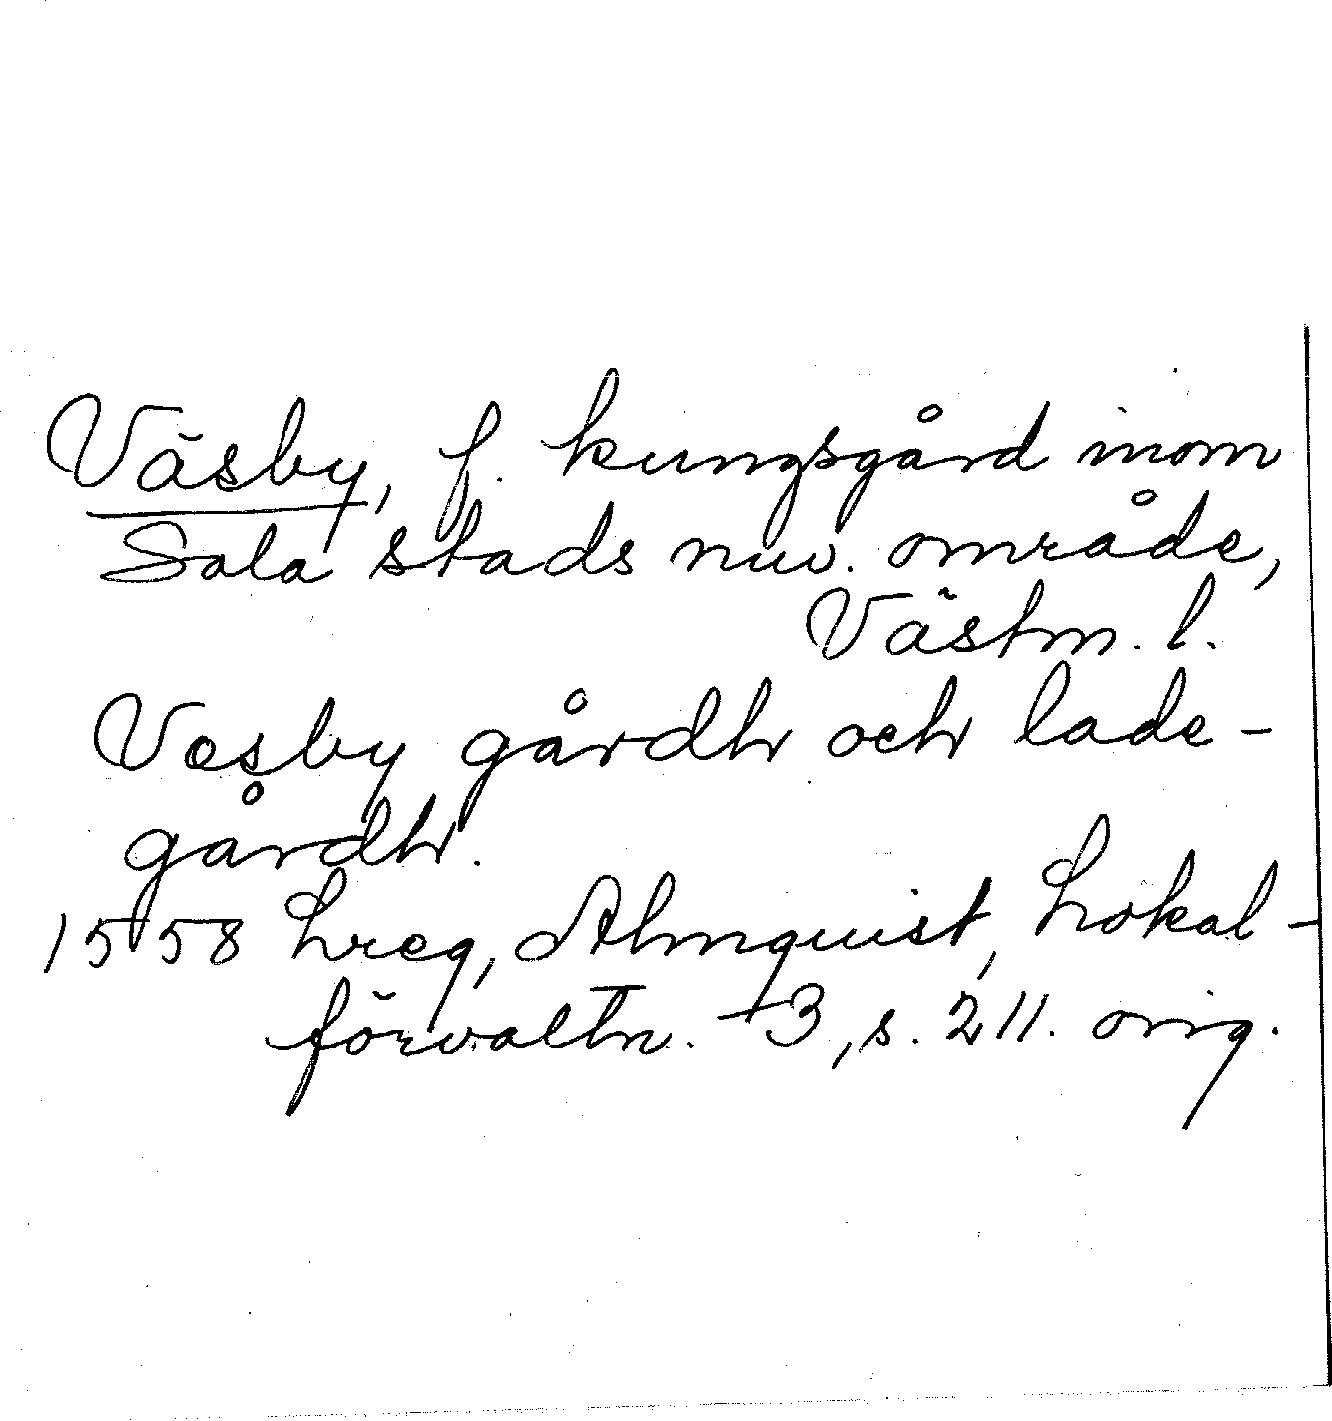 Väsby, f. kungsgård inom
Sala stads nuv. område,
Västm. l.
Vesby gårdh och lade-
gårdh.
1558 Lreg, Almquist, Lokal-
förvaltn. 3, s. 211. orig.